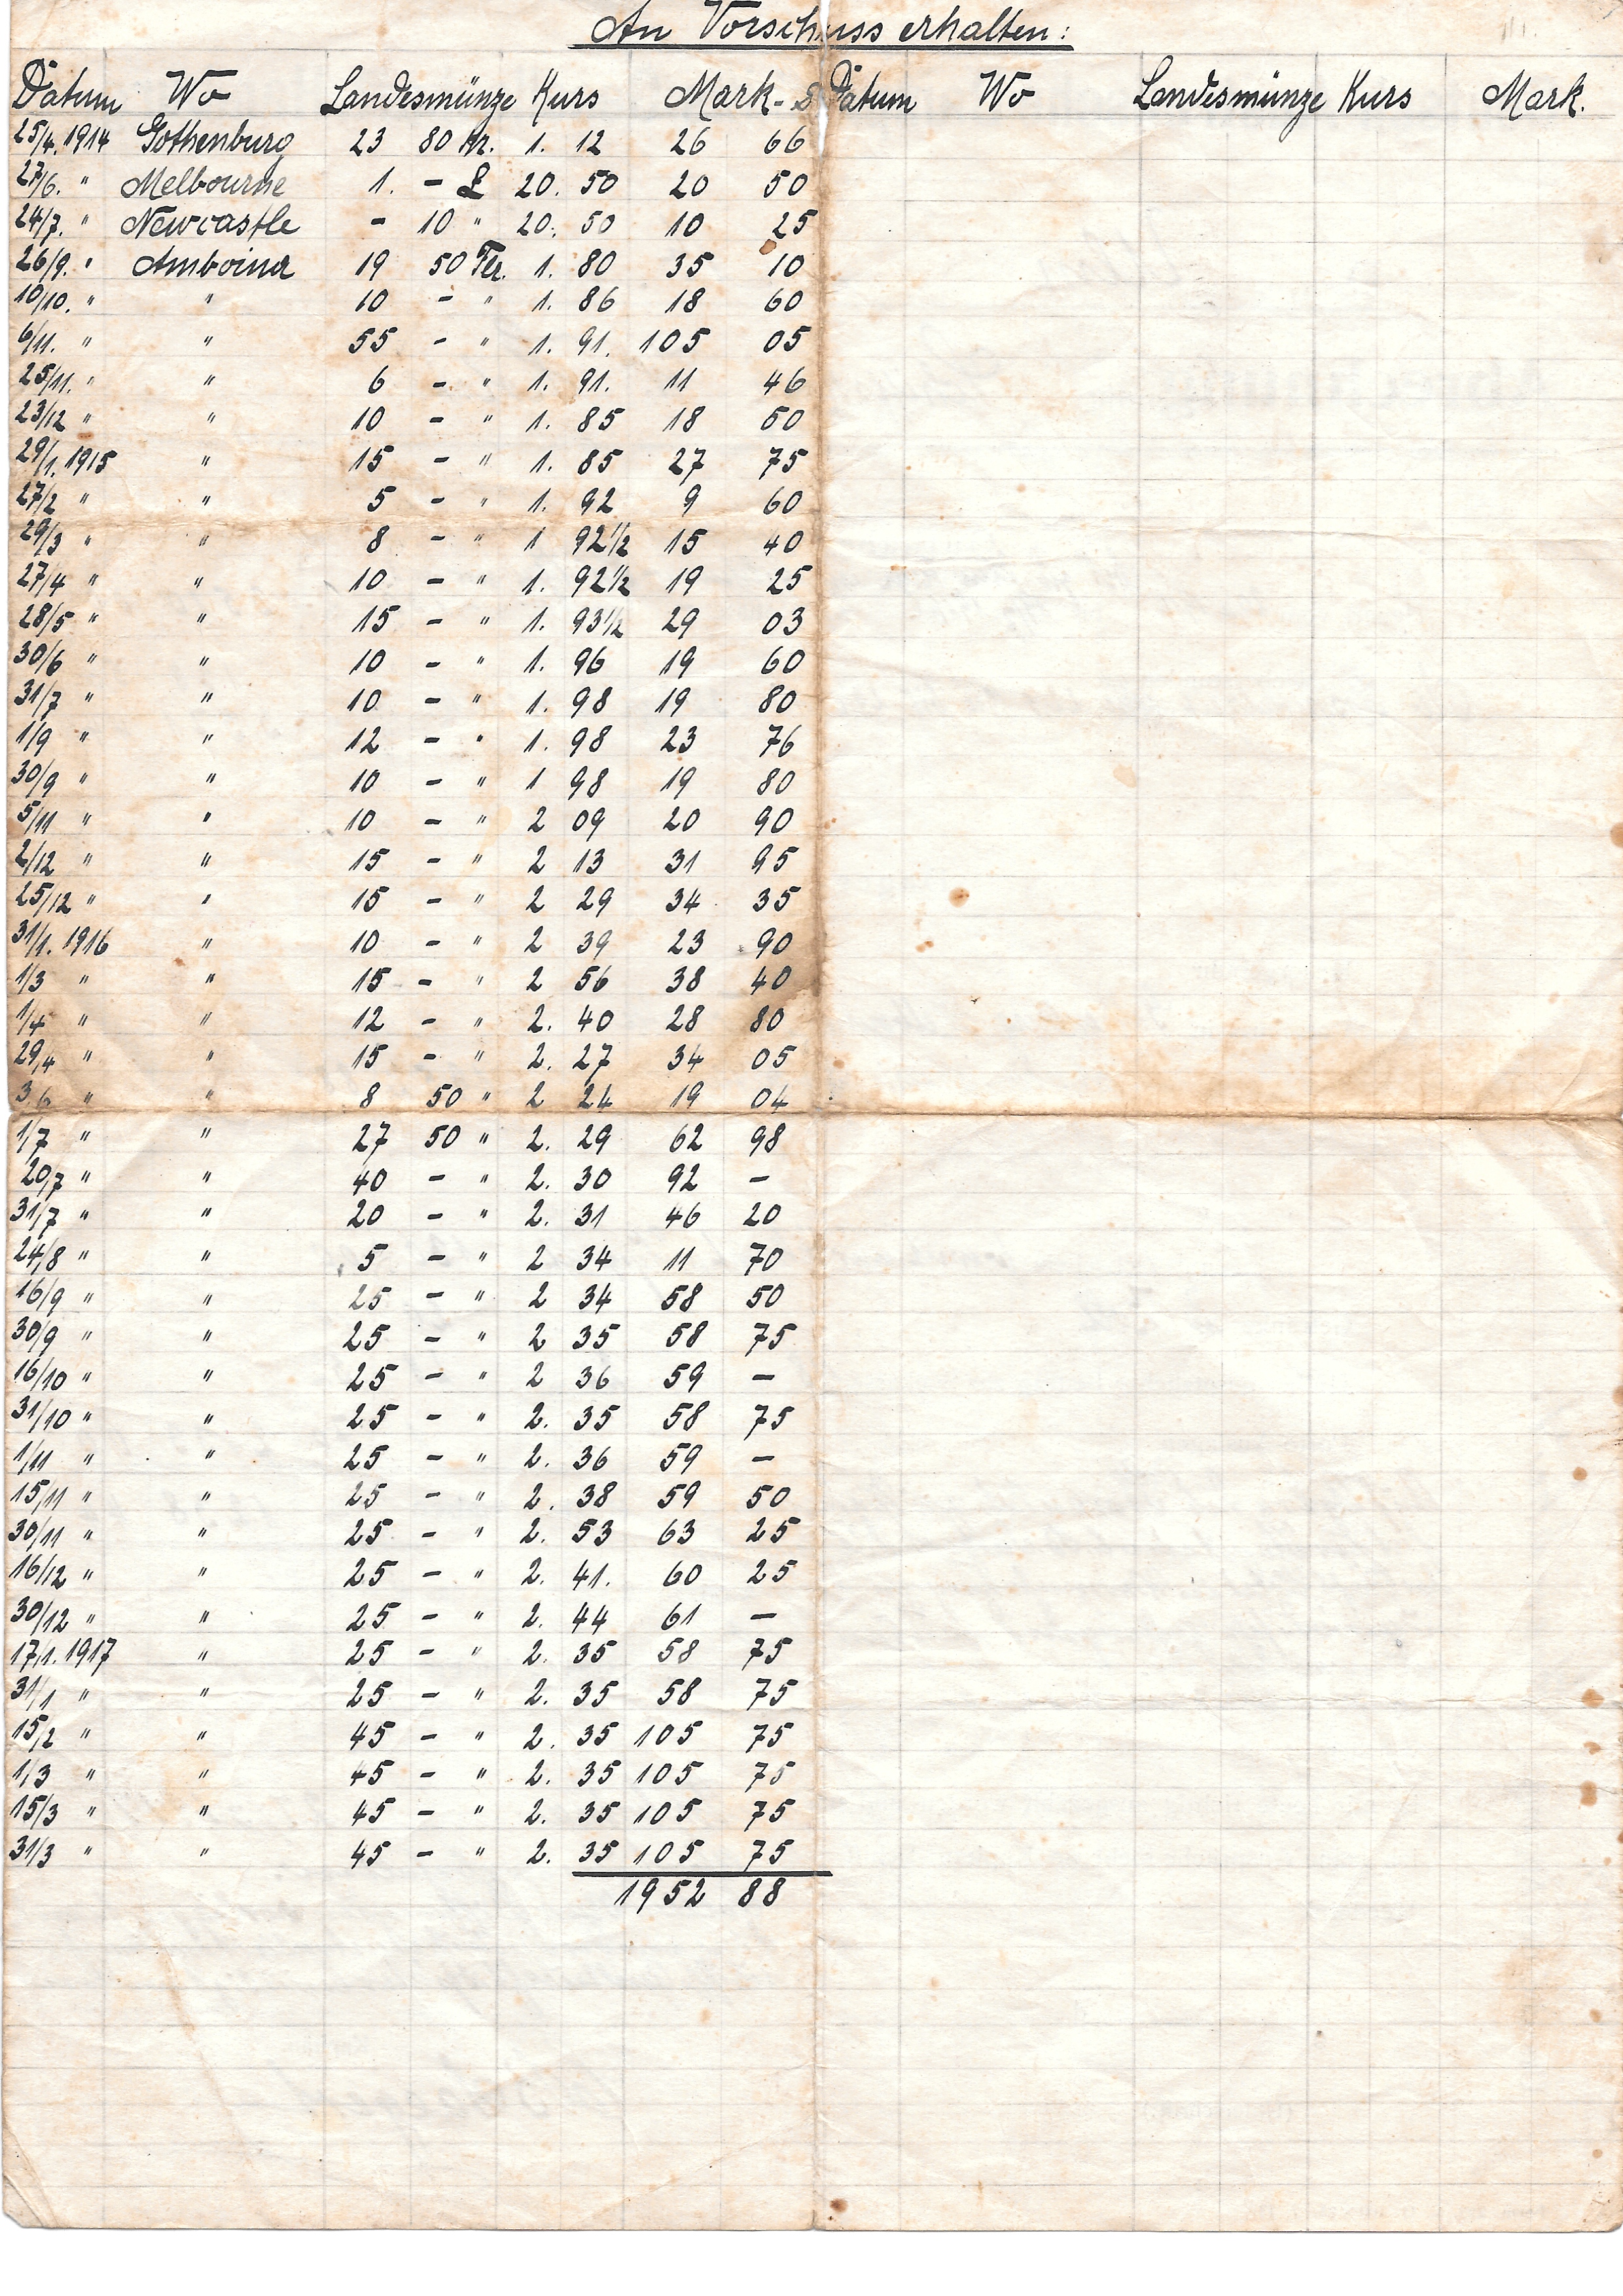 An Vorschuss erhalten:
Datum Wo Landesmünze Kurs Mark- Datum Wo Landesmünze Kurs Mark.
25/4. 1914 Gothenburg 23 80 Kr. 1. 12 26 66
27/6. " Melbourne 1. - £ 20. 50 20 50
24/7. " Newcastle - 10 " 20. 50 10 25
26/9. " Amboina 19 50 1. 80 35 10
10/10. " " 10 - " 1. 86 18 60
6/11. " " 55 - " 1. 91. 105 05
25/11. " " 6 - " 1. 91. 11 46
23/12 " " 10 - " 1. 85 18 50
29/1. 1915 " 15 - " 1. 85 27 75
27/2 " " 5 - " 1. 92 9 60
29/3 " " 8 - " 1 92½ 15 40
27/4 " " 10 - " 1. 92½ 19 25
28/5 " " 15 - " 1. 93½ 29 03
30/6 " " 10 - " 1. 96 19 60
31/7 " " 10 - " 1. 98 19 80
1/9 " " 12 - " 1. 98 23 76
30/9 " " 10 - " 1 98 19 80
5/11 " " 10 - " 2 09 20 90
2/12 " " 15 - " 2 13 31 95
25/12 " " 15 - " 2 29 34 35
31/1. 1916 " 10 - " 2 39 23 90
1/3 " " 15 - " 2 56 38 40
1/4 " " 12 - " 2. 40 28 80
29/4 " " 15 - " 2. 27 34 05
3/6 " " 8 50 " 2 24 19 04
1/7 " " 27 50 " 2. 29 62 98
20/7 " " 40 - " 2. 30 92 -
31/7 " " 20 - " 2. 31 46 20
24/8 " " 5 - " 2 34 11 70
16/9 " " 25 - " 2 34 58 50
30/9 " " 25 - " 2 35 58 75
16/10 " " 25 - " 2 36 59 -
31/10 " " 25 - " 2. 35 58 75
1/11 " " 25 - " 2. 36 59 -
15/11 " " 25 - " 2. 38 59 50
30/11 " " 25 - " 2. 53 63 25
16/12 " " 25 - " 2. 41. 60 25
30/12 " " 25 - " 2. 44 61 -
17/1. 1917 " 25 - " 2. 35 58 75
31/1 " " 25 - " 2. 35 58 75
15/2 " " 45 - " 2. 35 105 75
1/3 " " 45 - " 2. 35 105 75
15/3 " " 45 - " 2. 35 105 75
31/3 " " 45 - " 2. 35 105 75
1952 88